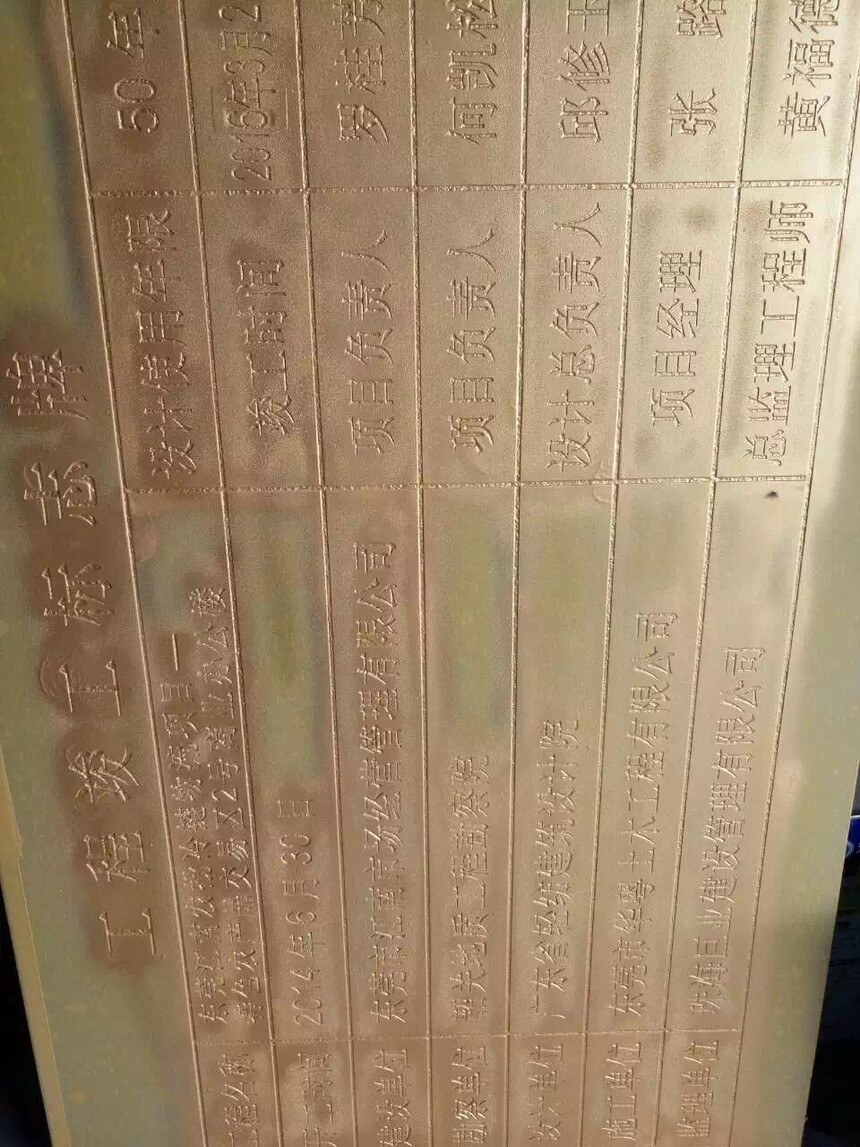 工程竣工标志牌
工程名称 东莞江南农批冷链物流项目一
特色农产品交易区2号商业办公楼 设计使用年限 50年
开工时间 2014年6月30日 竣工时间 2016年3月2
建设单位 东莞市江南市场经营管理有限公司 项目负责人 罗桂芳
勘察单位 韶关地质工程勘察院 项目负责人 何凯松
设计单位 广东省轻纺建筑设计院 设计总负责人 邱修玉
施工单位 东莞市华粤土木工程有限公司 项目经理 张路
监理单位 珠海巨业建设管理有限公司 总监理工程师 黄福德